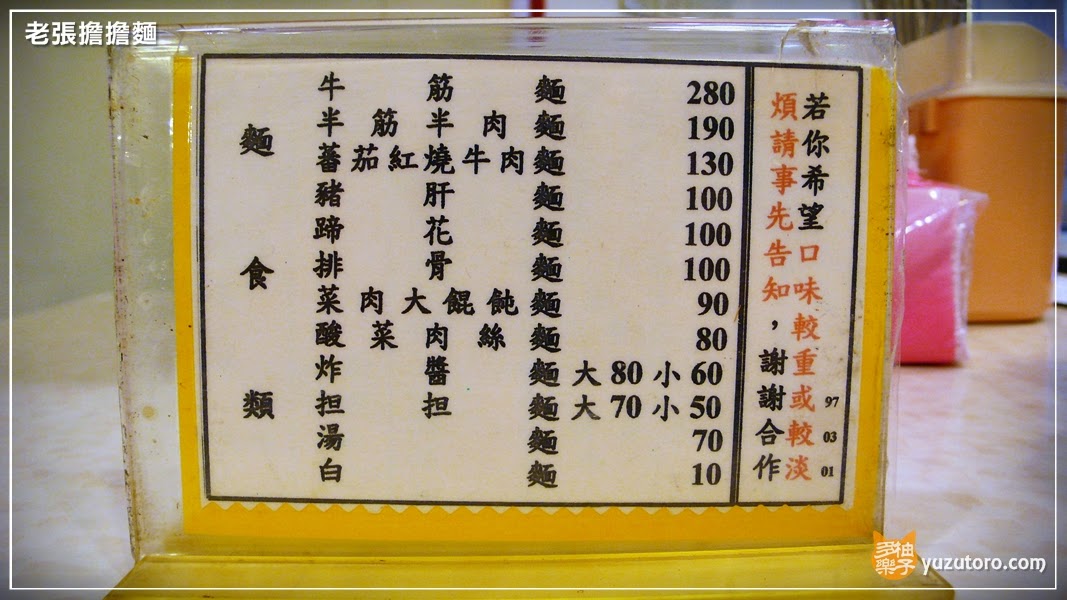 老張擔擔麵
麵食類
牛筋麵 280
半筋半肉麵 190
蕃茄紅燒牛肉麵 130
豬肝麵 100
蹄花麵 100
排骨麵 100
菜肉大餛飩麵 90
酸菜肉絲麵 80
炸醬麵 大 80 小 60
担担麵 大 70 小 50
湯麵 70
白麵 10
若你希望口味較重或較淡
煩請事先告知，謝謝合作
97 03 01
柚子多樂 yuzutoro.com